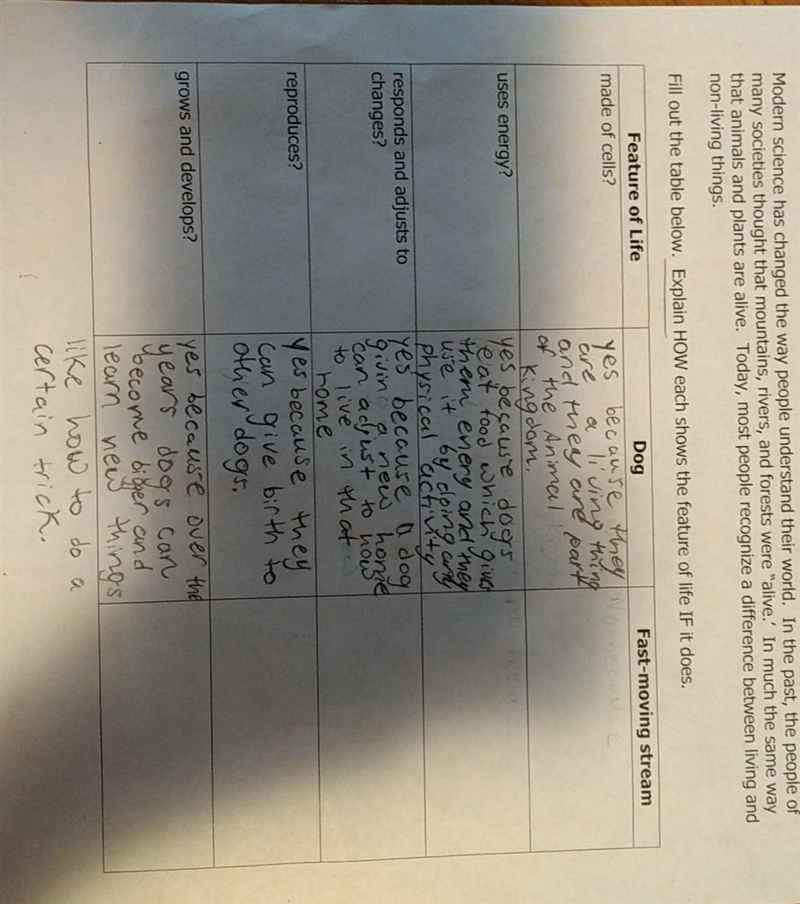 Modern science has changed the way people understand their world. In the past, the people of
many societies thought that mountains, rivers, and forests were "alive.' In much the same way
that animals and plants are alive. Today, most people recognize a difference between living and
non-living things.
Fill out the table below. Explain HOW each shows the feature of life IF it does.
Feature of Life
Dog
Fast-moving stream
made of cells?
yes because they
are a living thing
and they are part
of the Animal
kingdom.
uses energy?
yes because dogs
eat food which gives
them energy and they
use it by doing any
physical activity
responds and adjusts to
changes?
yes because a dog
givin a new home
can adjust to how
to live in that
home
reproduces?
yes because they
can give birth to
other dogs.
grows and develops?
yes because over the
years dogs can
become biger and
learn new things
like how to do a
certain trick.